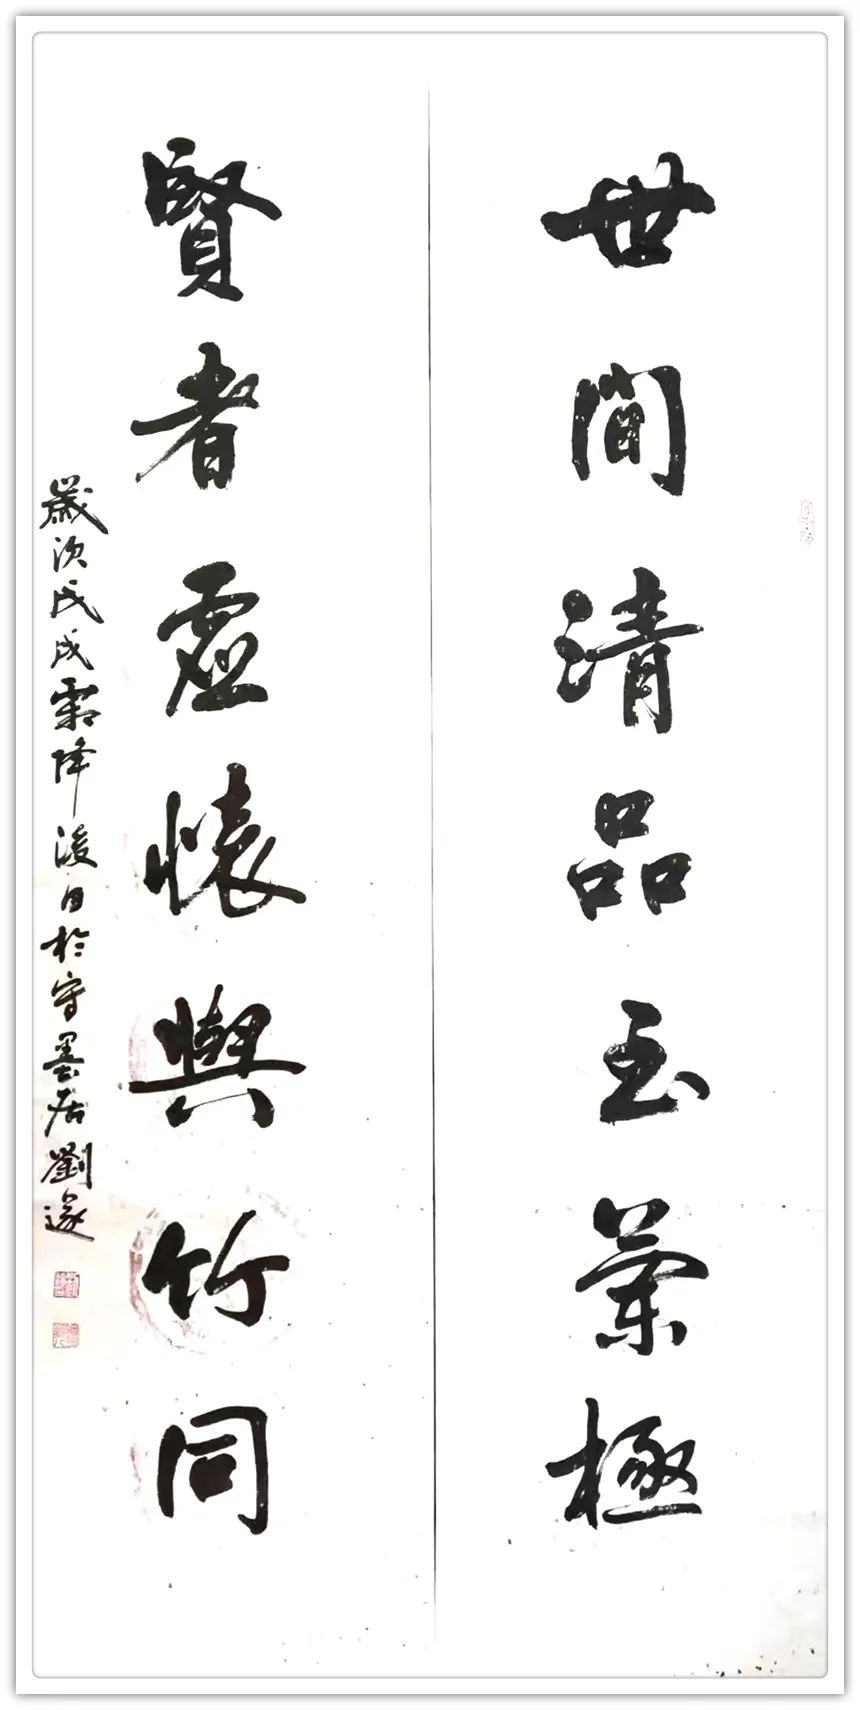 世間清品至蘭極
賢者虛懷與竹同
歲次戊戌霜降後日於守墨居劉遂